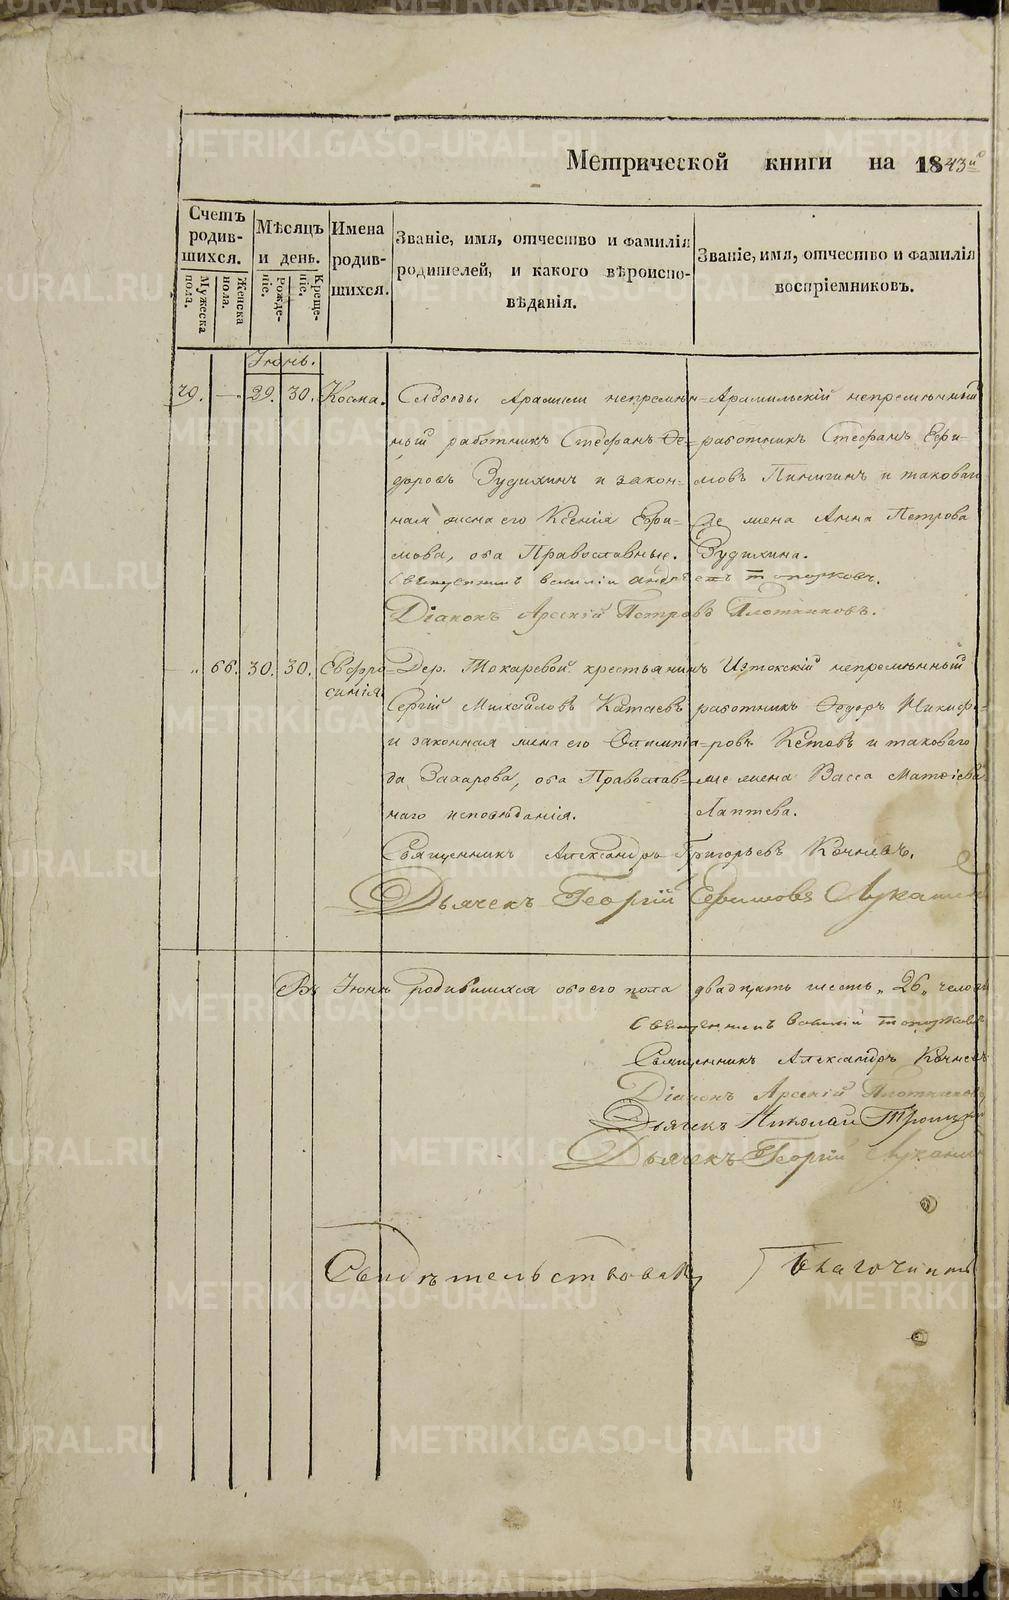 Метрической книги на 1843й
Счетъ родив- шихся.
Мужеска пола.
Женска пола.
Мѣсяцъ и день.
Рожде- ніе.
Креще- ніе.
Имена родив- шихся.
Званіе, имя, отчество и фамилія
родителей, и какого вѣроиспо-
вѣданія.
Званіе, имя, отчество и фамилія
воспріемниковъ.
Іюнь.
29. 30. Косма.
Слободы Арамили непремѣн-
ный работникъ Стефанъ Ѳе-
доровъ Зудихинъ и закон-
ная жена его Ксенія Ефи-
мова, оба Православные.
Арамильскій непремѣнный
работникъ Стефанъ Ефи-
мовъ Пинигинъ и таковаго
же жена Анна Петрова
Зудихина.
Священникъ Василій Андреевъ Топорковъ.
Діаконъ Арсеній Петровъ Плотниковъ.
66. 30. 30. Евфро-
синія.
Дер. Токаревой крестьянинъ
Сергій Михайловъ Катаевъ
и законная жена его Олимпіа-
да Захарова, оба Православ-
наго исповѣданія.
Истокскій непремѣнный
работникъ Ѳедоръ Никифо-
ровъ Кетовъ и таковаго
же жена Васса Матѳіева
Лаптева.
Священникъ Александръ Григорьевъ Кочневъ.
Дьячекъ Георгій Ефимовъ Луканин
Въ Іюнѣ родившихся обоего пола двадцать шесть „26„ челов
Священникъ Василій Топорковъ
Священникъ Александръ Кочневъ
Діаконъ Арсеній Плотниковъ
Дьячекъ Николай
Дьячекъ Георгій Луканин
Свидѣтельствовалъ Благочинн
METRIKI.GASO-URAL.RU